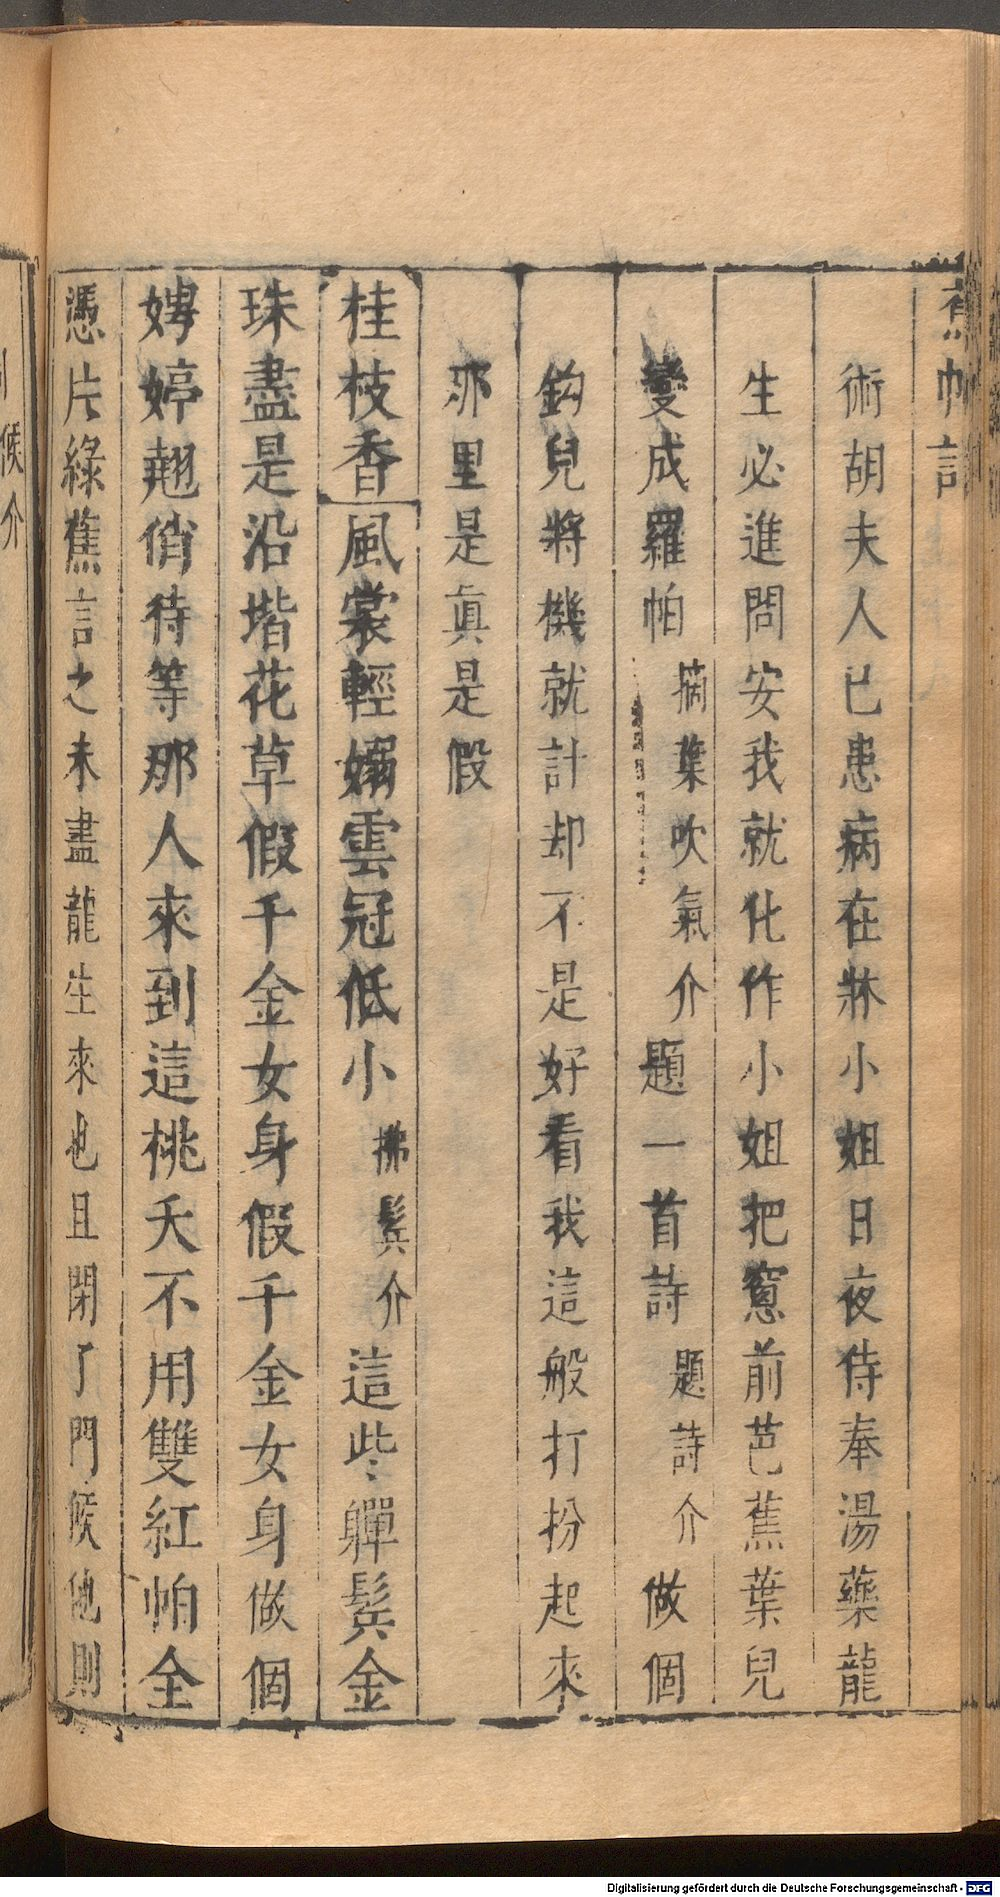 蕉帕記
術胡夫人已患病在牀小姐日夜侍奉湯藥龍
生必進問安我就化作小姐把窻前芭蕉葉兒
變成羅帕摘葉吹氣介題一首詩題詩介做個
鈎兒將機就計却不是好看我這般打扮起來
那里是眞是假
桂枝香風裳輕嫋雲冠低小拂鬂介這些軃鬂金
珠盡是沿堦花草假千金女身假千金女身做個
娉婷翹俏待等那人來到這桃夭不用雙紅帕全
憑片片綠蕉言之未盡龍生來也且閉了門候他則
候介
Digitalisierung gefördert durch die Deutsche Forschungsgemeinschaft - DFG